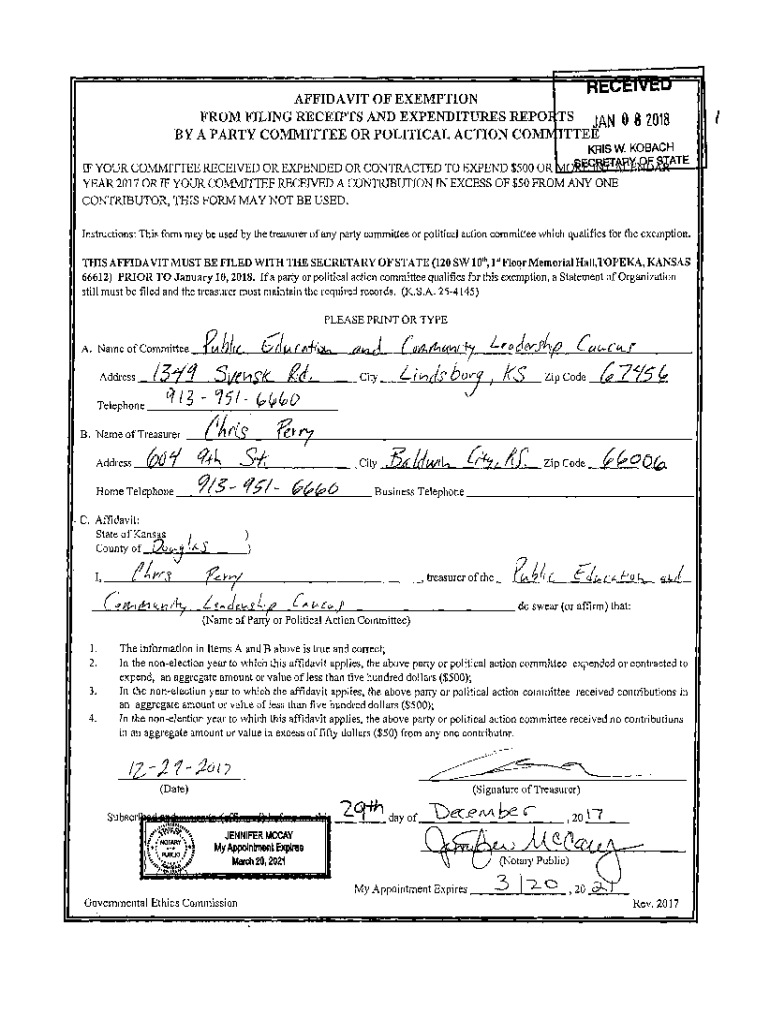 RECEIVED
JAN 08 2018
KRIS W. KOBACH
SECRETARY OF STATE
AFFIDAVIT OF EXEMPTION
FROM FILING RECEIPTS AND EXPENDITURES REPORTS
BY A PARTY COMMITTEE OR POLITICAL ACTION COMMITTEE
IF YOUR COMMITTEE RECEIVED OR EXPENDED OR CONTRACTED TO EXPEND $500 OR MORE IN CALENDAR
YEAR 2017 OR IF YOUR COMMITTEE RECEIVED A CONTRIBUTION IN EXCESS OF $50 FROM ANY ONE
CONTRIBUTOR, THIS FORM MAY NOT BE USED.
Instructions: This form may be used by the treasurer of any party committee or political action committee which qualifies for the exemption.
THIS AFFIDAVIT MUST BE FILED WITH THE SECRETARY OF STATE (120 SW 10th, 1st Floor Memorial Hall, TOPEKA, KANSAS
66612) PRIOR TO January 10, 2018. If a party or political action committee qualifies for this exemption, a Statement of Organization
still must be filed and the treasurer must maintain the required records. (K.S.A. 25-4145)
PLEASE PRINT OR TYPE
A. Name of Committee Public Education and Community Leadership Caucus
Address 1349 Svensk Rd. City Lindsborg, KS Zip Code 67456
Telephone 913-951-6660
B. Name of Treasurer Chris Perry
Address 604 9th St. City Baldwin City, KS. Zip Code 66006
Home Telephone 913-951-6660 Business Telephone
C. Affidavit:
State of Kansas )
County of Douglas )
I, Chris Perry, treasurer of the Public Education and
Community Leadership Caucus do swear (or affirm) that:
(Name of Party or Political Action Committee)
1. The information in Items A and B above is true and correct;
2. In the non-election year to which this affidavit applies, the above party or political action committee expended or contracted to
expend, an aggregate amount or value of less than five hundred dollars ($500);
3. In the non-election year to which the affidavit applies, the above party or political action committee received contributions in
an aggregate amount or value of less than five hundred dollars ($500);
4. In the non-election year to which this affidavit applies, the above party or political action committee received no contributions
in an aggregate amount or value in excess of fifty dollars ($50) from any one contributor.
12-29-2017
(Date) (Signature of Treasurer)
29th day of December, 2017
NOTARY PUBLIC
JENNIFER MCCAY
My Appointment Expires
March 20, 2021
Jennifer McCay
(Notary Public)
My Appointment Expires 3/20, 2021
Governmental Ethics Commission Rev. 2017